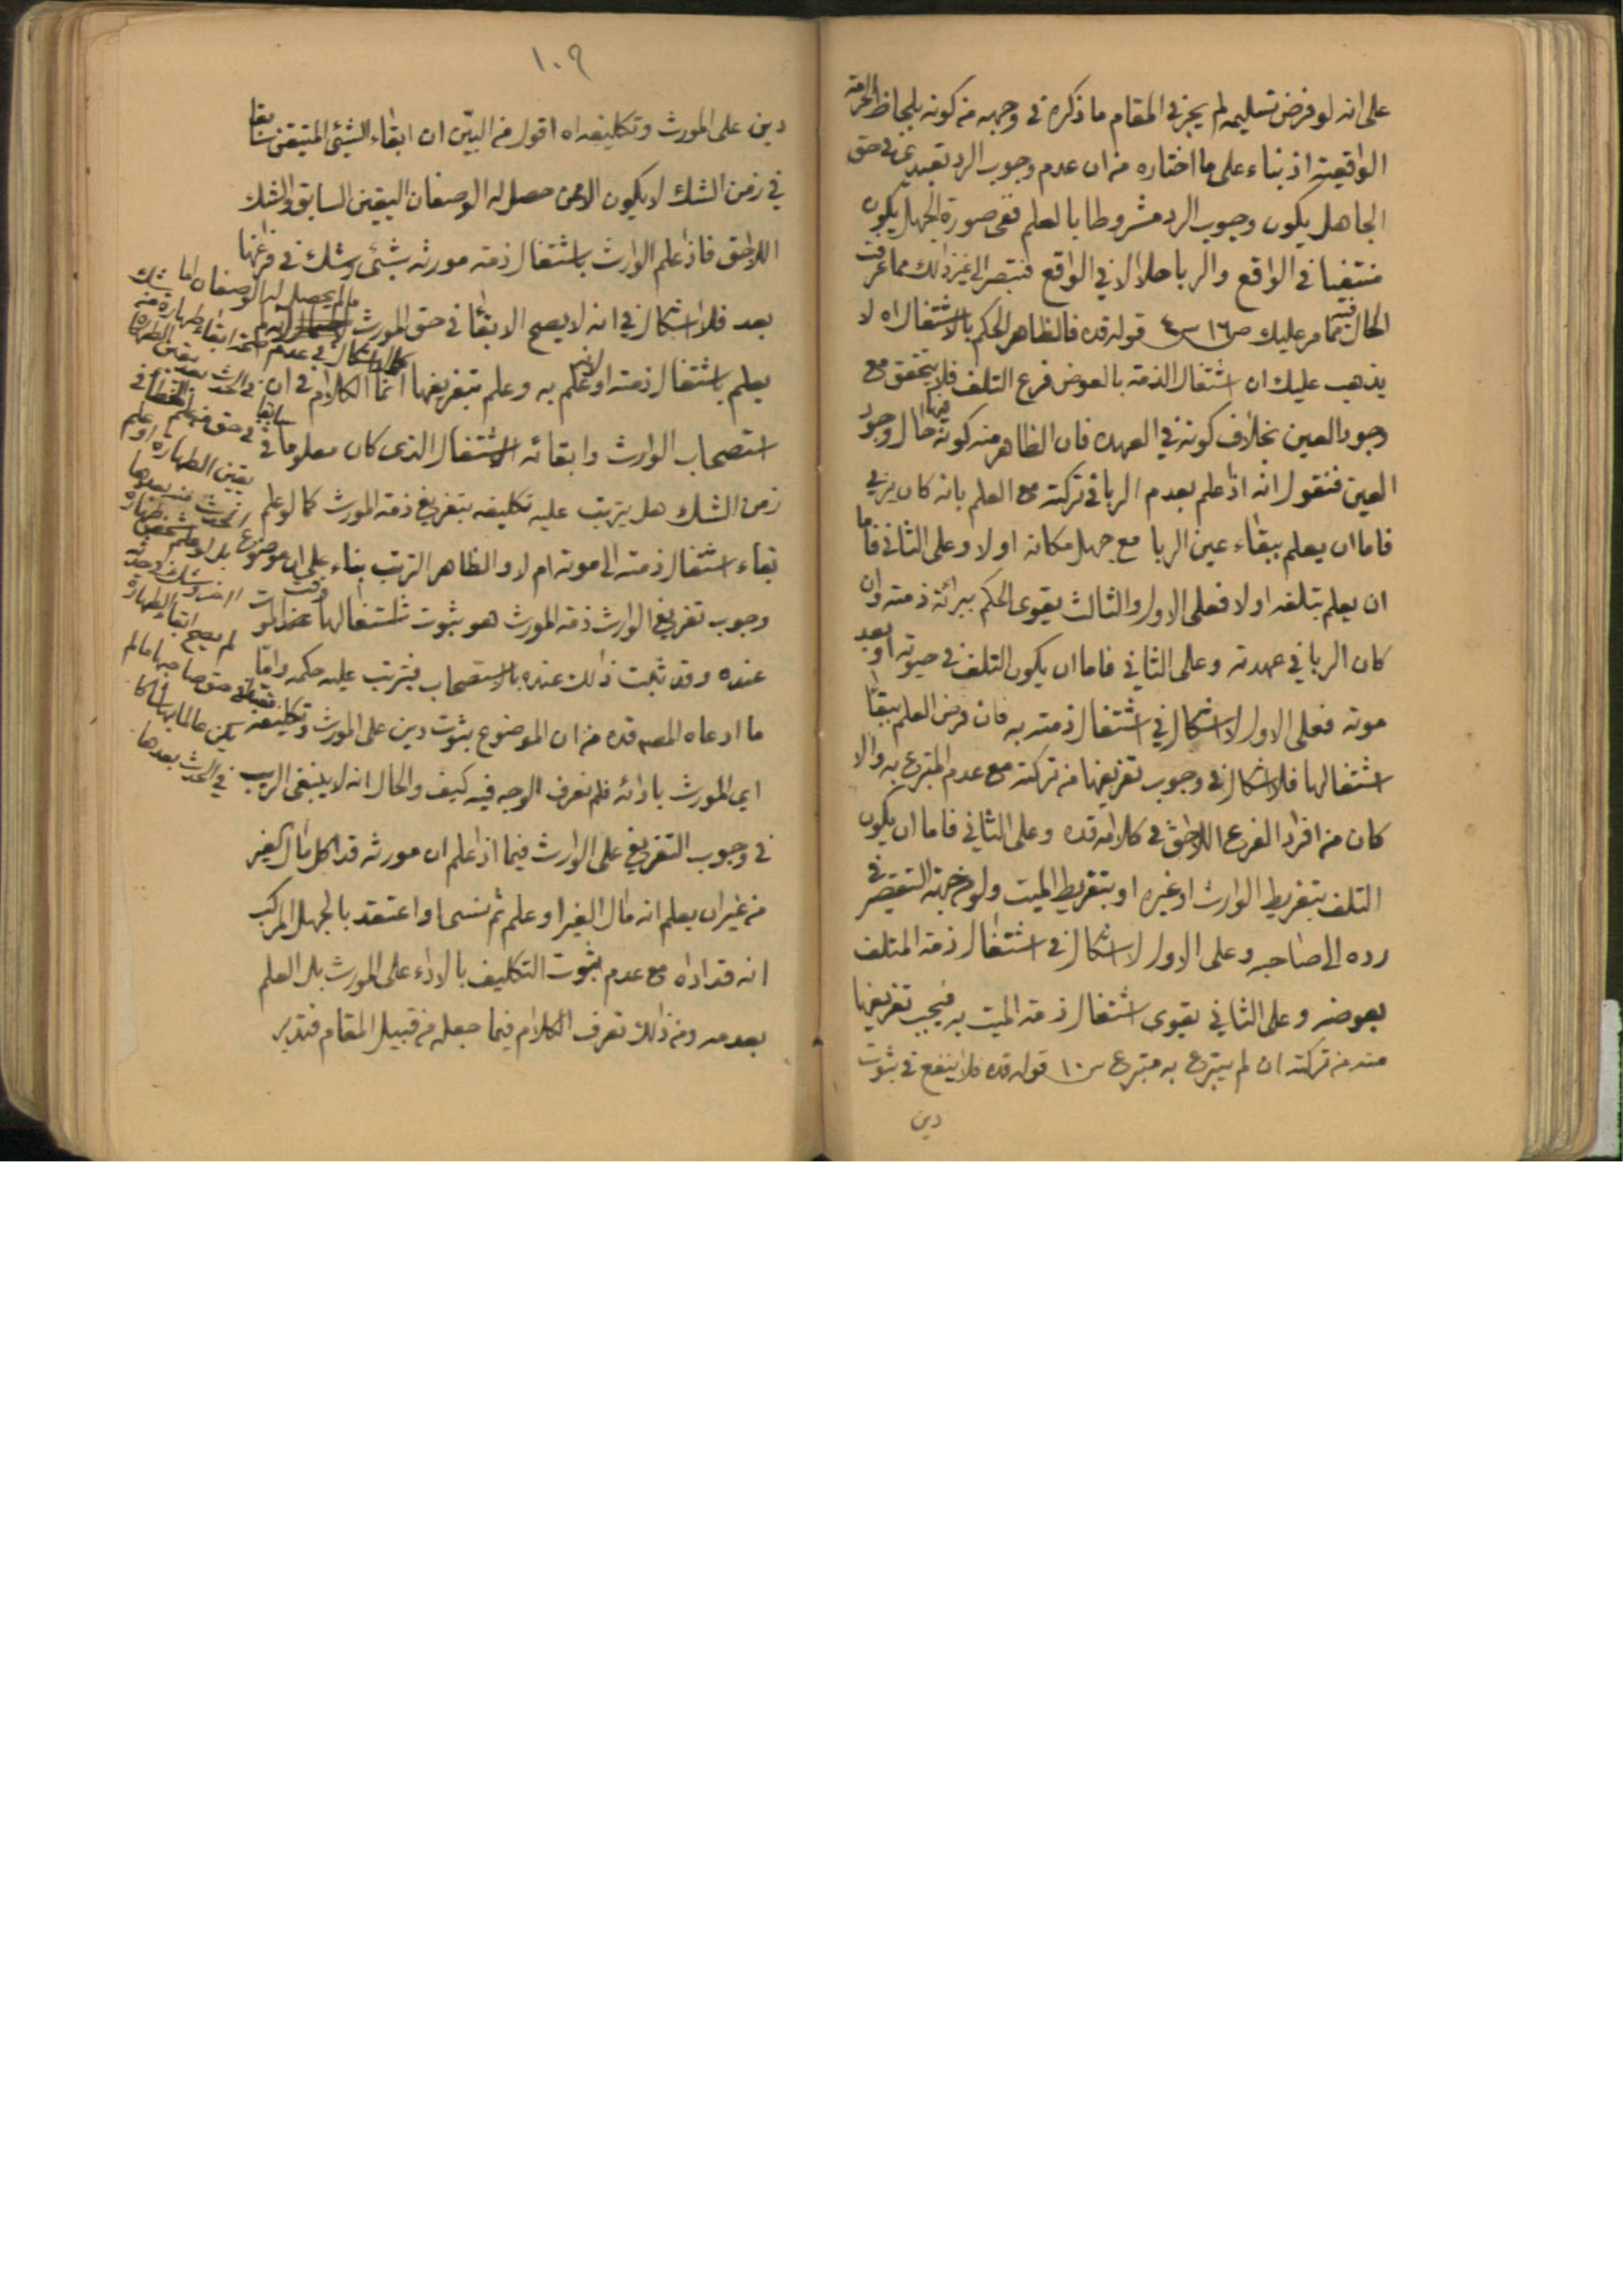 على انه لو فرض تسليمه لم يجز في المقام ما ذكره في وجهه من كونه بلحاظ الحرمة
الواقعية اذ بناء على ما اختاره من ان عدم وجوب الرد تعبدي في حق
الجاهل يكون وجوب الرد مشروطا بالعلم ففى صورة الجهل يكون
منتفيا في الواقع والربا حلالا في الواقع فتبصر الى غير ذلك مما عرفت
الحال فيه مما مر عليك ص١٦ س٤ قوله قده فالظاهر الحكم بالاشتغال اه لا
يذهب عليك ان اشتغال الذمة بالعوض فرع التلف فلا يتحقق مع
وجود العين بخلاف كونه في العهده فان الظاهر منه كونه فيها حال وجود
العين فنقول انه اذا علم بعدم الربا في تركته مع العلم بانه كان يربي
فاما ان يعلم ببقاء عين الربا مع جهل مكانه اولا وعلى الثاني فاما
ان يعلم بتلفه اولا فعلى الاول والثالث يقوى الحكم ببرائة ذمته وان
كان الربا في عهدته وعلى الثاني فاما ان يكون التلف في حيوته او بعد
موته فعلى الاول لا اشكال في اشتغال ذمته به فان فرض العلم ببقاء
اشتغالها فلا اشكال في وجوب تفريغها من تركته مع عدم المتبرع به والا
كان من افراد الفرع اللاحق في كلامه قده وعلى الثاني فاما ان يكون
التلف بتفريط الوارث او غيره او بتفريط الميت ولو من جهة التقصير في
رده الى صاحبه وعلى الاول لا اشكال في اشتغال ذمة المتلف
بعوضه وعلى الثاني يقوى اشتغال ذمة الميت به فيجب تفريغها
منه من تركته ان لم يتبرع به متبرع س١٠ قوله قده فلا ينفع في ثبوت
دين
١٠٩
دين على المورث وتكليفه اه اقول من البيّن ان ابقاء الشيئ المتيقن سابقا
في زمن الشك لا يكون الا ممن حصل له الوصفان اليقين السابق والشك
اللاحق فاذا علم الوارث باشتغال ذمة مورثه بشيئ وشك في فراغها
بعد فلا اشكال في انه لا يصح الابقاء في حق المورث
يعلم باشتغال ذمته او علم به وعلم بتفريغها انما الكلام في ان
استصحاب الوارث وابقائه الاشتغال الذى كان معلوما في
زمن الشك هل يترتب عليه تكليفه بتفريغ ذمة المورث كما لو علم
بقاء اشتغال ذمته الى موته ام لا والظاهر الترتب بناء على ان موضوع
وجوب تفريغ الوارث ذمة المورث هو ثبوت اشتغالها
عنده وقد ثبت ذلك عنده بالاستصحاب فيترتب عليه حكمه واما
ما ادعاه المصه قده من ان الموضوع ثبوت دين على المورث وتكليفه
اي المورث بادائه فلم نعرف الوجه فيه كيف والحال انه لا ينبغى الريب
في وجوب التفريغ على الوارث فيما اذا علم ان مورثه قد اكل مال الغير
من غير ان يعلم انه مال الغير او علم ثم نسى او اعتقد بالجهل المركب
انه قد اداه مع عدم ثبوت التكليف بالاداء على المورث بل العلم
بعدمه ومن ذلك تعرف الكلام فيما جعله من قبيل المقام فتدبر
ما لم يحصل له الوصفان اما
يقين الطهارة او علم
لم يصح ابقاء الطهارة
في حق صاحبها ما لم
يكن عالما بها شاكا
في الحدث بعدها